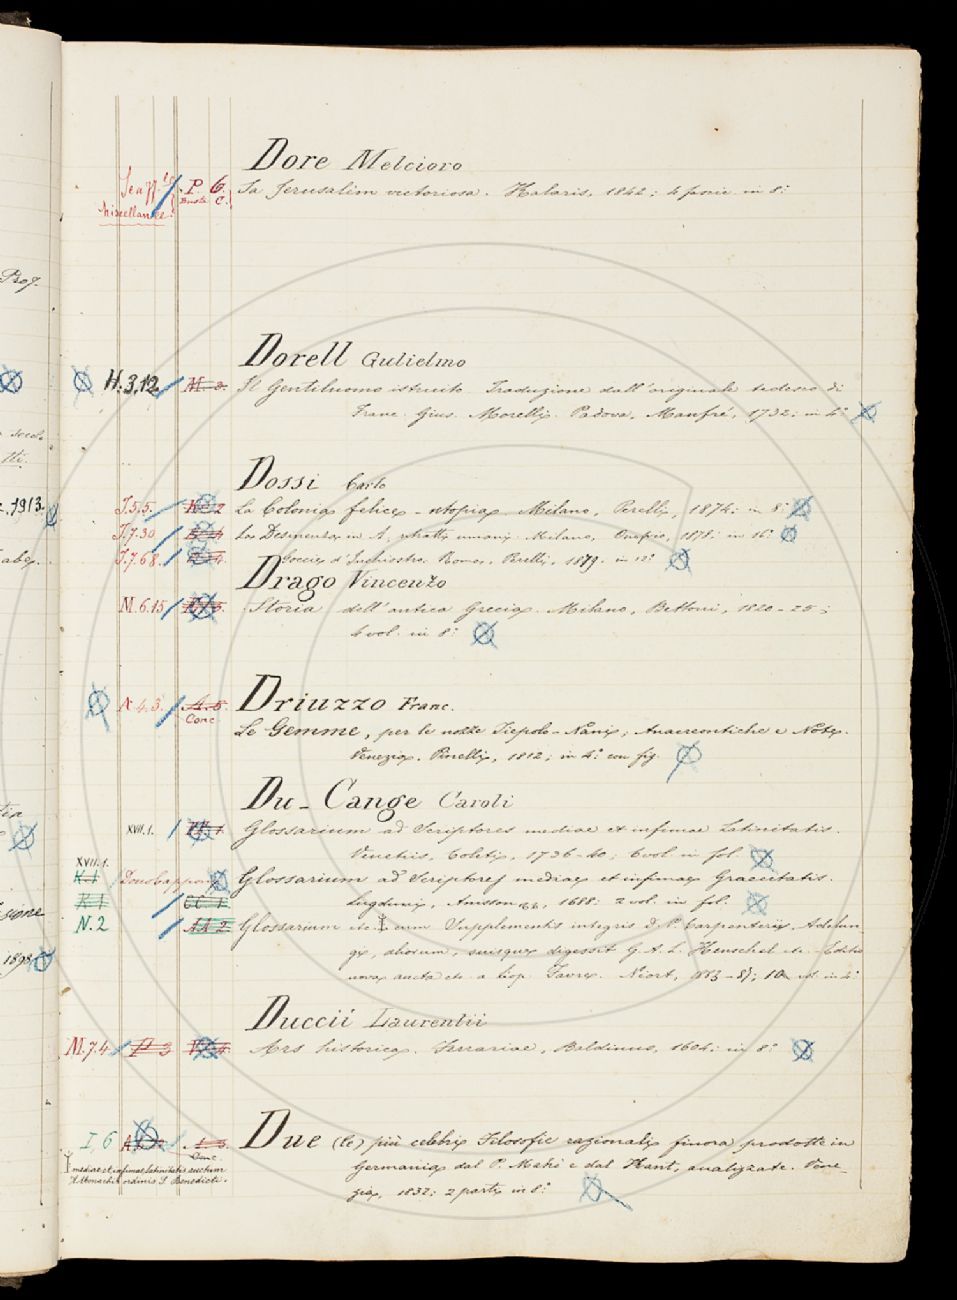 Dore Melcioro
Sa Jerusalem victoriosa. Kalaris, 1842; 4 fasic in 8°
P. 6.
Busta C.
Miscellanee
Dorell Gulielmo
H.3,12
Il Gentiluomo istruito Traduzione dall'originale tedesco di
Franc. Gius. Morelli. Padova, Manfré, 1732; in 4°
Dossi Carlo
I.5.5.
La Colonia felice - utopia. Milano, Perelli, 1874; in 8°
I.7.30
La Desinenza in A, ritratti umani. Milano, 1878. in 16°
I.7.68.
Goccie d'Inchiostro. Roma, Perelli, 1879. in 12°
Drago Vincenzo
M.6.15
Storia dell'antica Grecia. Milano, Bettoni, 1820-25;
4 vol. in 8°
Driuzzo Franc.
A 4.3.
Conc.
Le Gemme, per le nozze Tiepolo-Nani; Anacreontiche e Note.
Venezia, Pinelli, 1812; in 4° con fig.
Du-Cange Caroli
XVII.1.
Glossarium ad Scriptores mediae et infimae Latinitatis.
Venetiis, Coleti, 1736-40; 6 vol. in fol.
XVII.1.
Glossarium ad Scriptores mediae et infimae Graecitatis.
Lugduni, Anisson, 1688: 2 vol. in fol.
N.2
Glossarium etc. cum Supplementis integris D. P. Carpenterii, Adelun-
gii, aliorum, suisque digessit G. A. L. Henschel etc. Editio
nova aucta etc a Leop. Favre. Niort, 1883-87; 10 vol. in 4°
Duccii Laurentii
M.7.4
Ars historica. Ferrariae, Baldinus, 1604; in 8°
I,6
Conc.
Due (le) più celebri Filosofie razionali finora prodotte in
Germania dal P. e dal Kant, analizzate. Vene-
zia, 1832; 2 parti in 8°
mediae et infimae latinitatis auctum
A Monachis ordinis S. Benedicti.
1913.